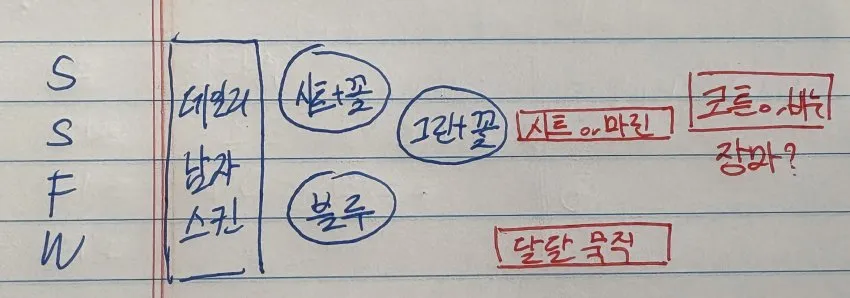 S
S
F
W
데일리
남자
스킨
시트+꽃
블루
그린+꽃
시트 or 마린
달달 묵직
코튼 or 비누
장마?